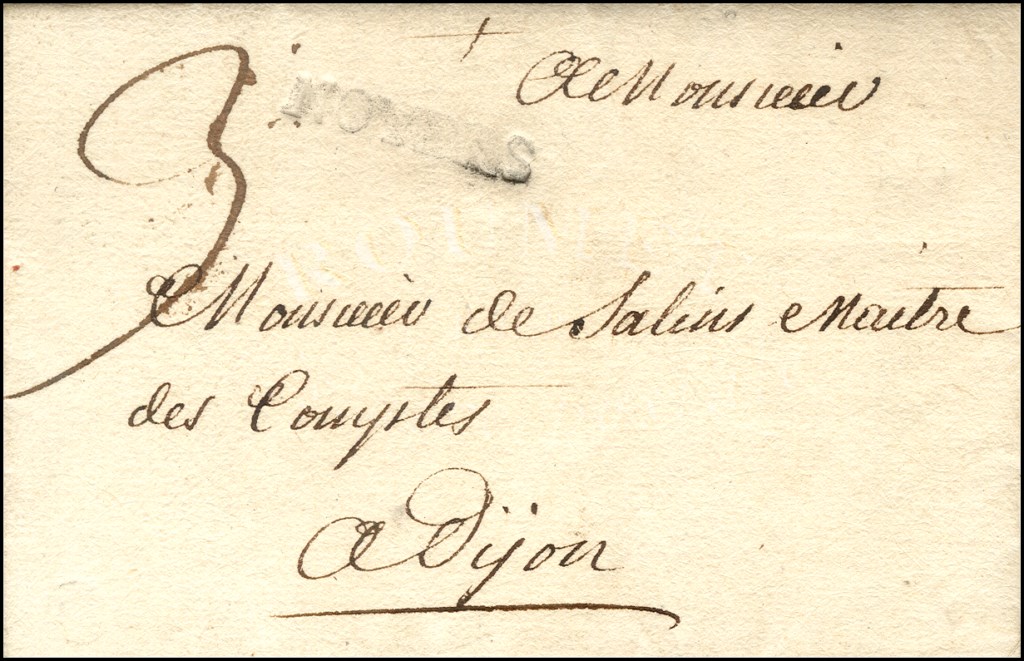 3
A Monsieur
Monsieur de Salins Maitre
des Comptes
A Dijon